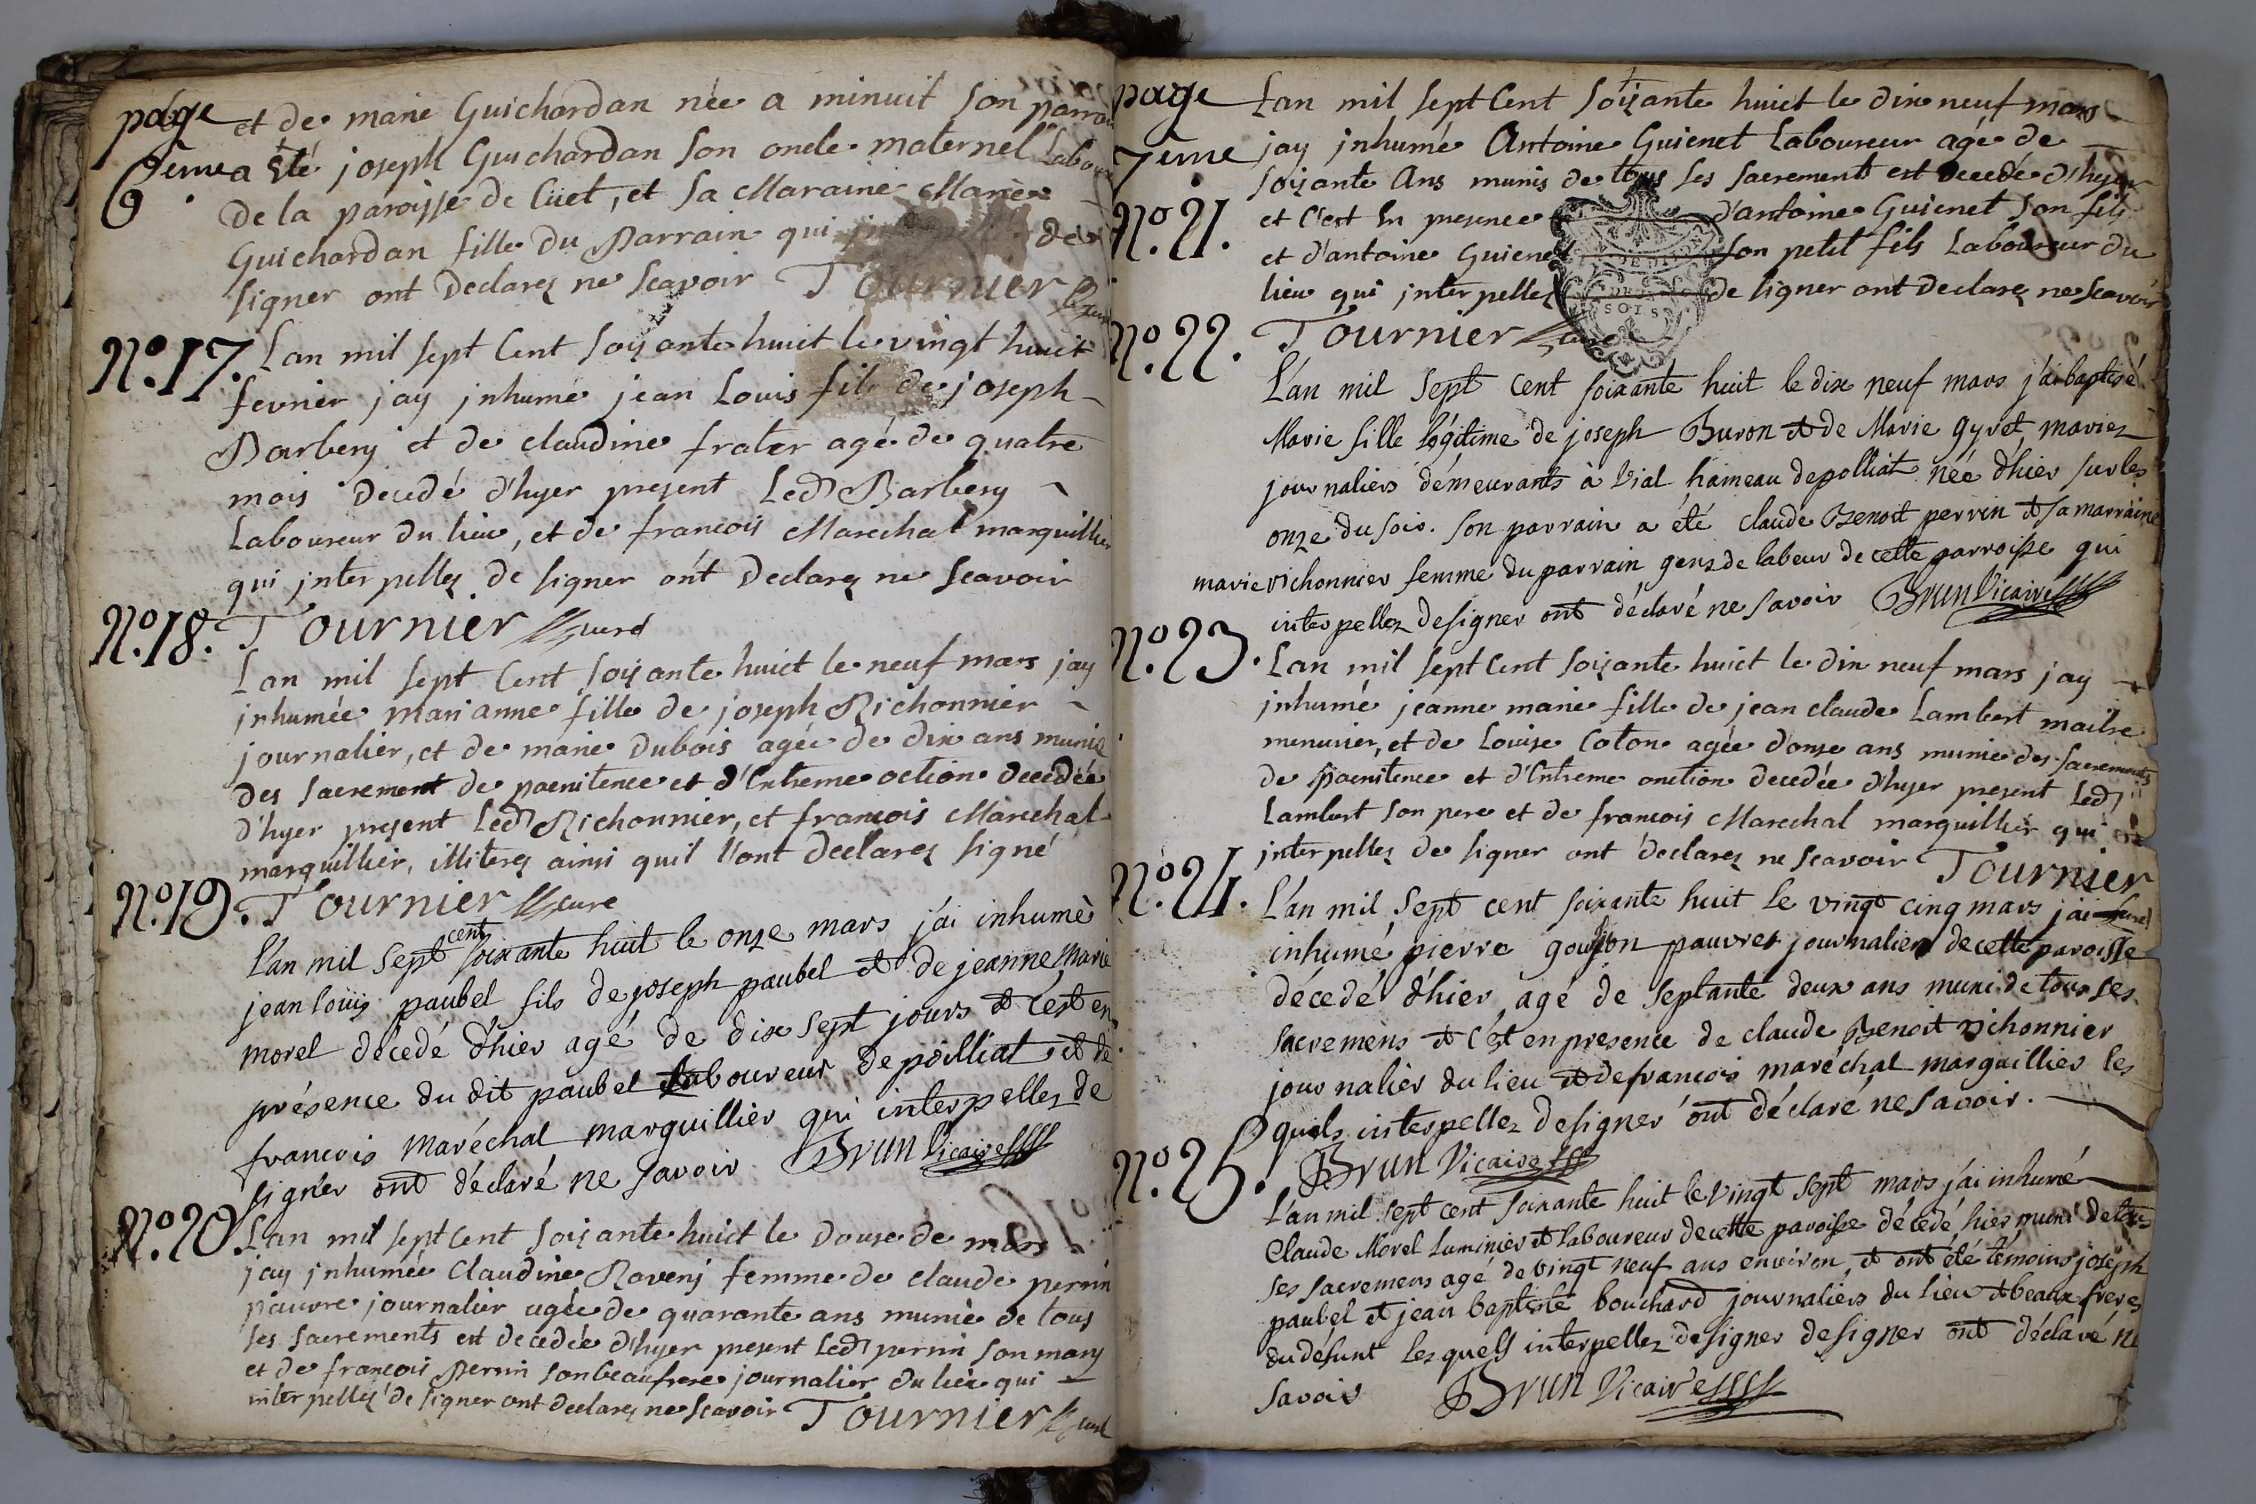 page
6eme
et de marie Guichardan née a minuit son parrain
a été joseph Guichardan son oncle maternel Labour
de la paroisse de Cüet, et sa Maraine Mariè
Guichardan fille du Parrain qui de
signer ont declarez ne scavoir Tournier Curé
No. 17. Lan mil sept Cent soixante huict le vingt huict
fevrier jay jnhumé jean Louis fils de joseph
Barbery et de claudine frater agé de quatre
mois decedé d'hyer present Led Barbery
Laboureur du lieu, et de francois Marechal marguillier
qui jnterpellez de signer ont declarez ne scavoir
Tournier curé
No. 18.
Lan mil sept Cent soixante huict le neuf mars jay
jnhumée marianne fille de joseph Richonnier
journalier, et de marie dubois agée de dix ans munie
des sacrement de paenitence et d'Extreme oction decedée
d'hyer present Led Richonnier, et francois Marechal
marguillier, illiterez ainsi quil l'ont declarez signé
No. 19. Tournier curé
L'an mil sept cent soixante huit le onze mars j'ai inhumè
jean loüis paubel fils de joseph paubel et de jeanne Marie
morel décedé d'hier agé de dix sept jours et c'est en
présence du dit paubel Laboureur de polliat et de
francois maréchal marguillier qui interpellez de
signer ont déclaré ne savoir Brun Vicaire
No. 20. Lan mil sept Cent soixante huict le douze de mars
jay jnhumée Claudine Raveny femme de claude perrin
pauvre journalier agée de quarante ans munie de tous
ses sacrements est decedée d'hyer present Led perrin son mary
et de francois Perrin son beaufrere journalier du lieu qui
interpellez de signer ont declarez ne scavoir Tournier curé
page
7eme
Lan mil sept Cent soixante huict le dix neuf mars
jay jnhumé Antoine Guienet Laboureur agé de
soixante Ans munis de tous ses sacrements est decedé d'hyer
No. 21. et C'est En presence d'antoine Guienet son fils
et d'antoine Guienet son petit fils Laboureur du
lieu qui jnterpellez de signer ont declarez ne scavoir
SOLS
No. 22. Tournier curé
L'an mil sept cent soixante huit le dix neuf mars j'ai baptisé
Marie fille légitime de joseph Buron et de Marie gyret mariez
journaliers démeurants à Vial hameau de polliat née d'hier sur les
onze du soir. son parrain a été claude Benoit perrin et sa marraine
marie vichonnier femme du parrain gens de labeur de cette parroisse qui
interpellez de signer ont déclaré ne savoir Brun Vicaire
No. 23. Lan mil sept Cent soixante huict le dix neuf mars jay
jnhumé jeanne marie fille de jean claude Lambert maitre
menusier, et de Louise Coton agée donze ans munie des sacrements
de paenitence et d'Extreme onction decedée d'hyer present Led
Lambert son pere et de francois Marechal marguillier qui
interpellez de signer ont declarez ne scavoir Tournier
No. 24. L'an mil sept cent soixante huit le vingt cinq mars j'ai curé
inhumé pierre goujon pauvre journalier de cette paroisse
décedé d'hier agé de septante deux ans muni de tous ses
sacremens et c'est en presence de claude Benoit vichonnier
journalier du lieu et de francois maréchal marguillier les
quels interpellez de signer ont déclaré ne savoir.
No. 25. Brun Vicaire
L'an mil sept cent soixante huit le vingt sept mars j'ai inhumé
Claude Morel luminier et laboureur de cette paroisse décedé hier muni de
ses sacremens agé de vingt neuf ans environ, et ont été témoins joseph
paubel et jean baptiste bouchard journaliers du lieu et beaux freres
du défunt lesquels interpellez de signer de signer ont déclaré ne
savoir Brun Vicaire